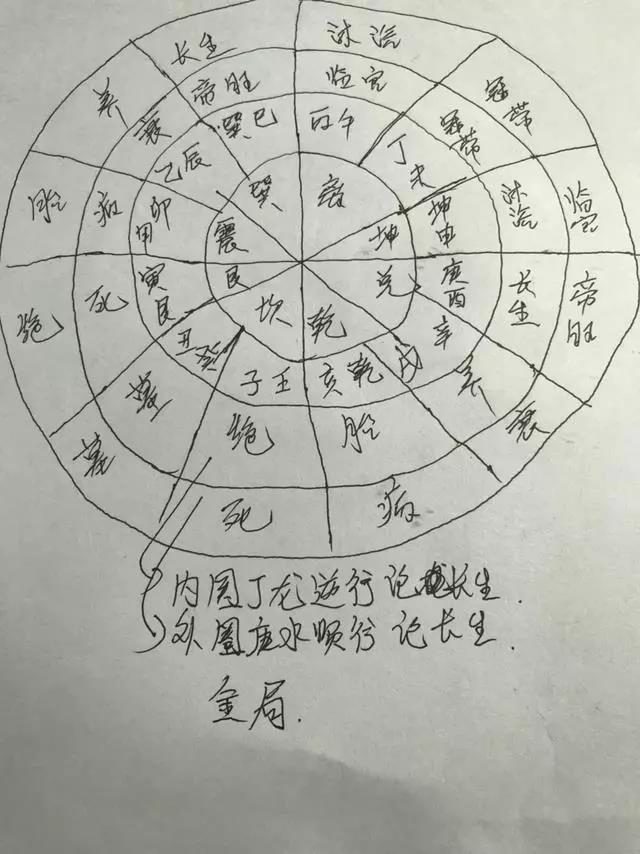 长生 沐浴
冠带
临官
帝旺
衰
病
死
墓
绝
胎
养
帝旺 临官
冠带
沐浴
长生
养
胎
绝
墓
死
病
衰
癸巳 丙午
丁未
坤申
庚酉
辛戌
乾亥
壬子
癸丑
艮寅
甲卯
乙辰
巽 离
坤
兑
乾
坎
艮
震
内圆丁龙逆行论长生.
外圈庚水顺行论长生.
金局.